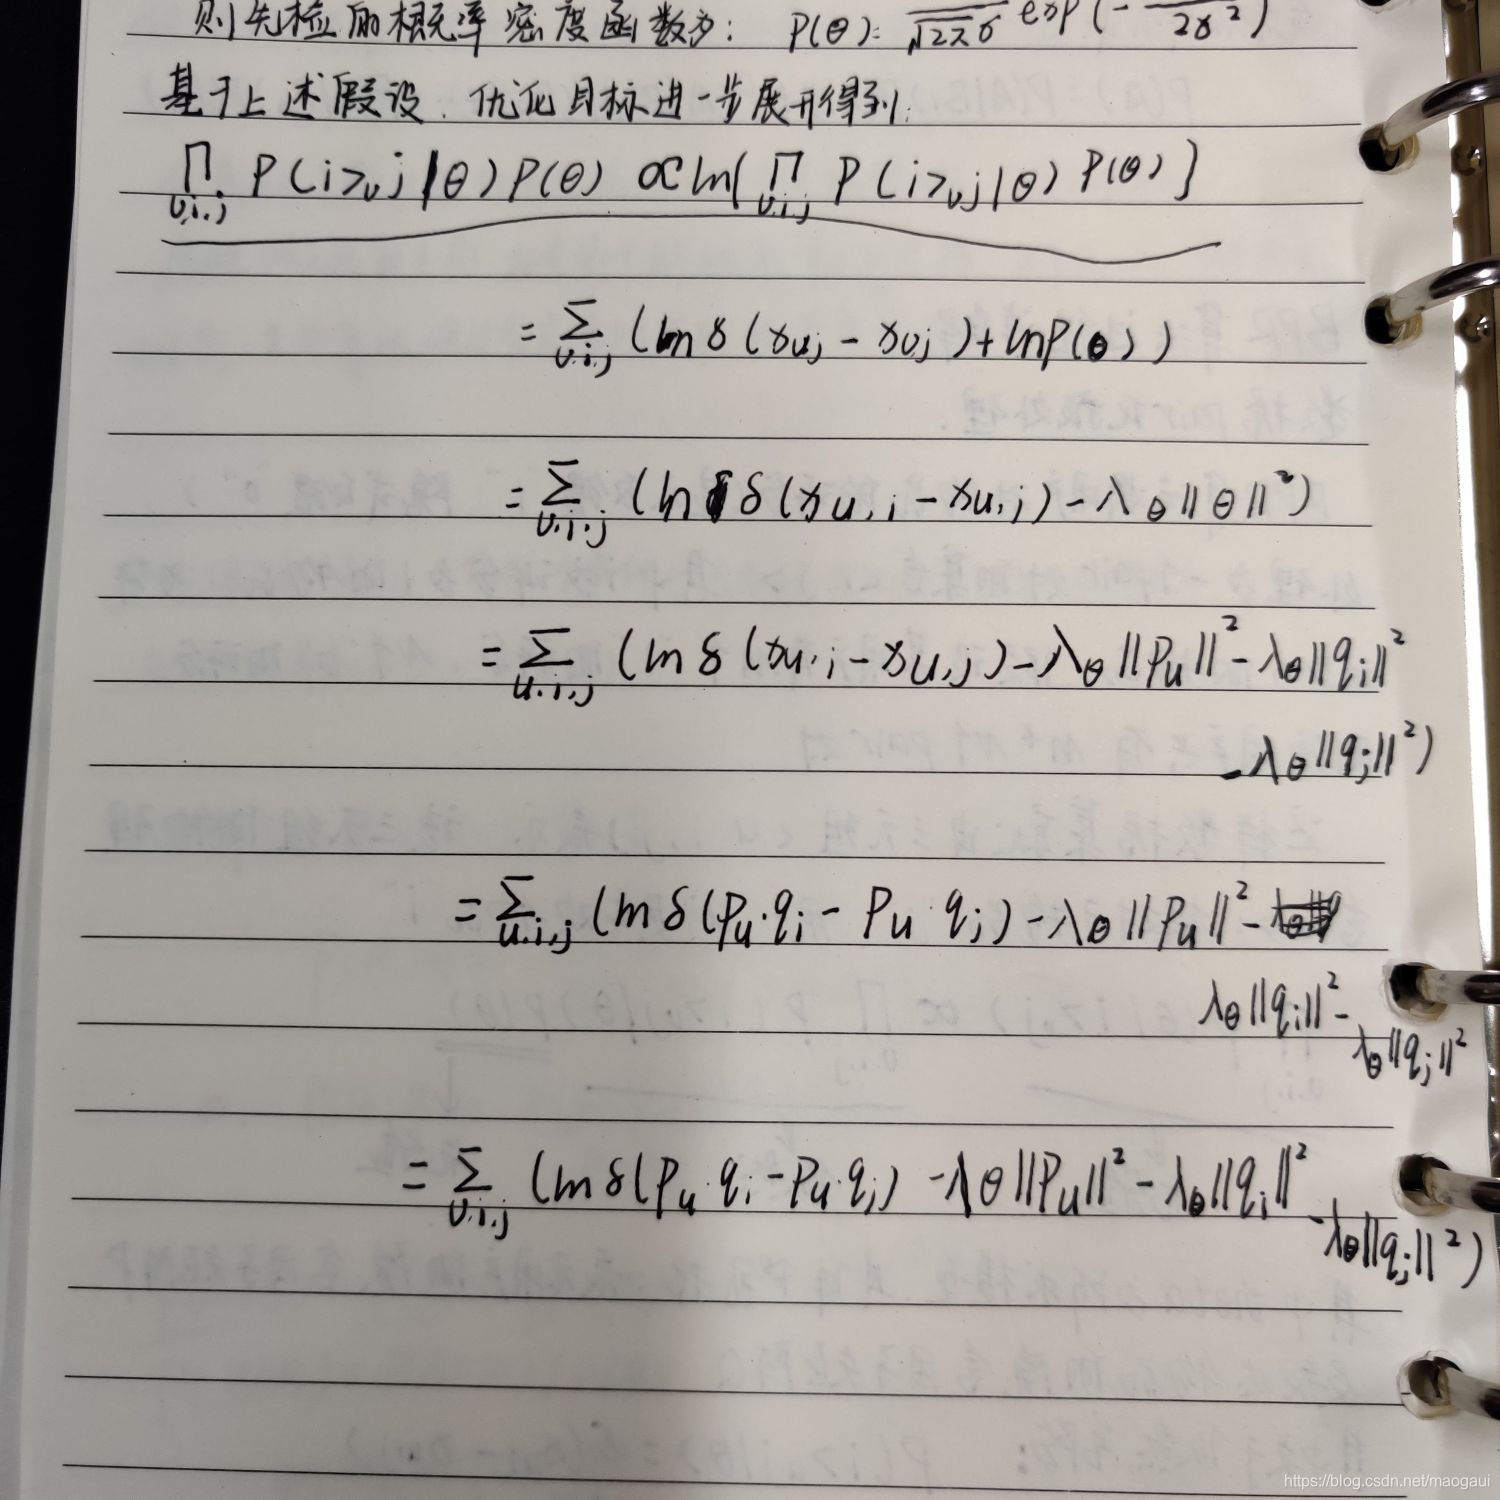 则先检的概率密度函数为： P(θ)= 1/√2πσ exp(- 2σ²)
基于上述假设，优化目标进一步展开得到：
∏ u,i,j P(i>uj|θ)P(θ) ∝ ln[∏ u,i,j P(i>uj|θ) P(θ)]
= Σ u,i,j (ln δ(xuj - xuj) + lnP(θ))
= Σ u,i,j (ln δ(xu,i - xu,j) - λθ||θ||²)
= Σ u,i,j (ln δ(xu,i - xu,j) - λθ||Pu||² - λθ||qi||²
- λθ||qj||²)
= Σ u,i,j (ln δ(Pu·qi - Pu·qj) - λθ||Pu||² -
λθ||qi||² -
λθ||qj||²
= Σ u,i,j (ln δ(Pu·qi - Pu·qj) - λθ||Pu||² - λθ||qi||²
- λθ||qj||²)
https://blog.csdn.net/maogaui